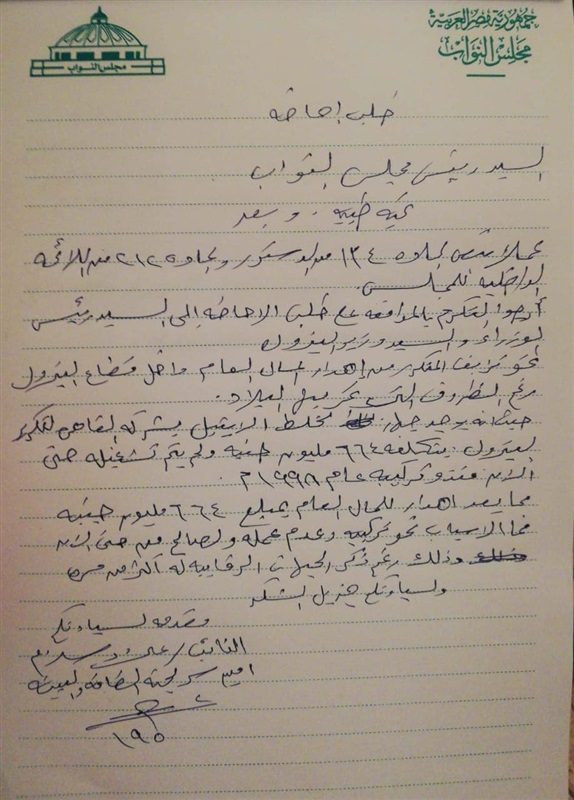 جمهورية مصر العربية
مجلس النواب
مجلس النواب
طلب احاطه
السيد رئيس مجلس النواب
تحيه طيبه . وبعد
عملا بنص الماده ١٣٤ من الدستور والماده ٢١٢ من اللائحه
الداخليه للمجلس
أرجوا التكرم بالموافقه على طلب الاحاطه إلى السيد رئيس
الوزراء والسيد وزير البترول
نحو تزايد من اهدار المال العام داخل قطاع البترول
رغم الظروف التى تمر بها البلاد .
حيث انه يوجد جهاز لخلط الايثيل بشركه القاهره لتكرير
البترول بتكلفه ٦٦٤ مليون جنيه ولم يتم تشغيله حتى
الان منذ تركيبه عام ١٩٩٨ م
مما يعد اهدار للمال العام بمبلغ ٦٦٤ مليون جنيه
فما الاسباب نحو تركيبه وعدم عمله ولصالح من حتى الان
وذلك رغم ذكر الجهات الرقابيه له اكثر من مره
ولسيادتكم جزيل الشكر
مقدمه لسيادتكم
النائب /
امين سر لجنة الطاقه والبيئه
١٩٥